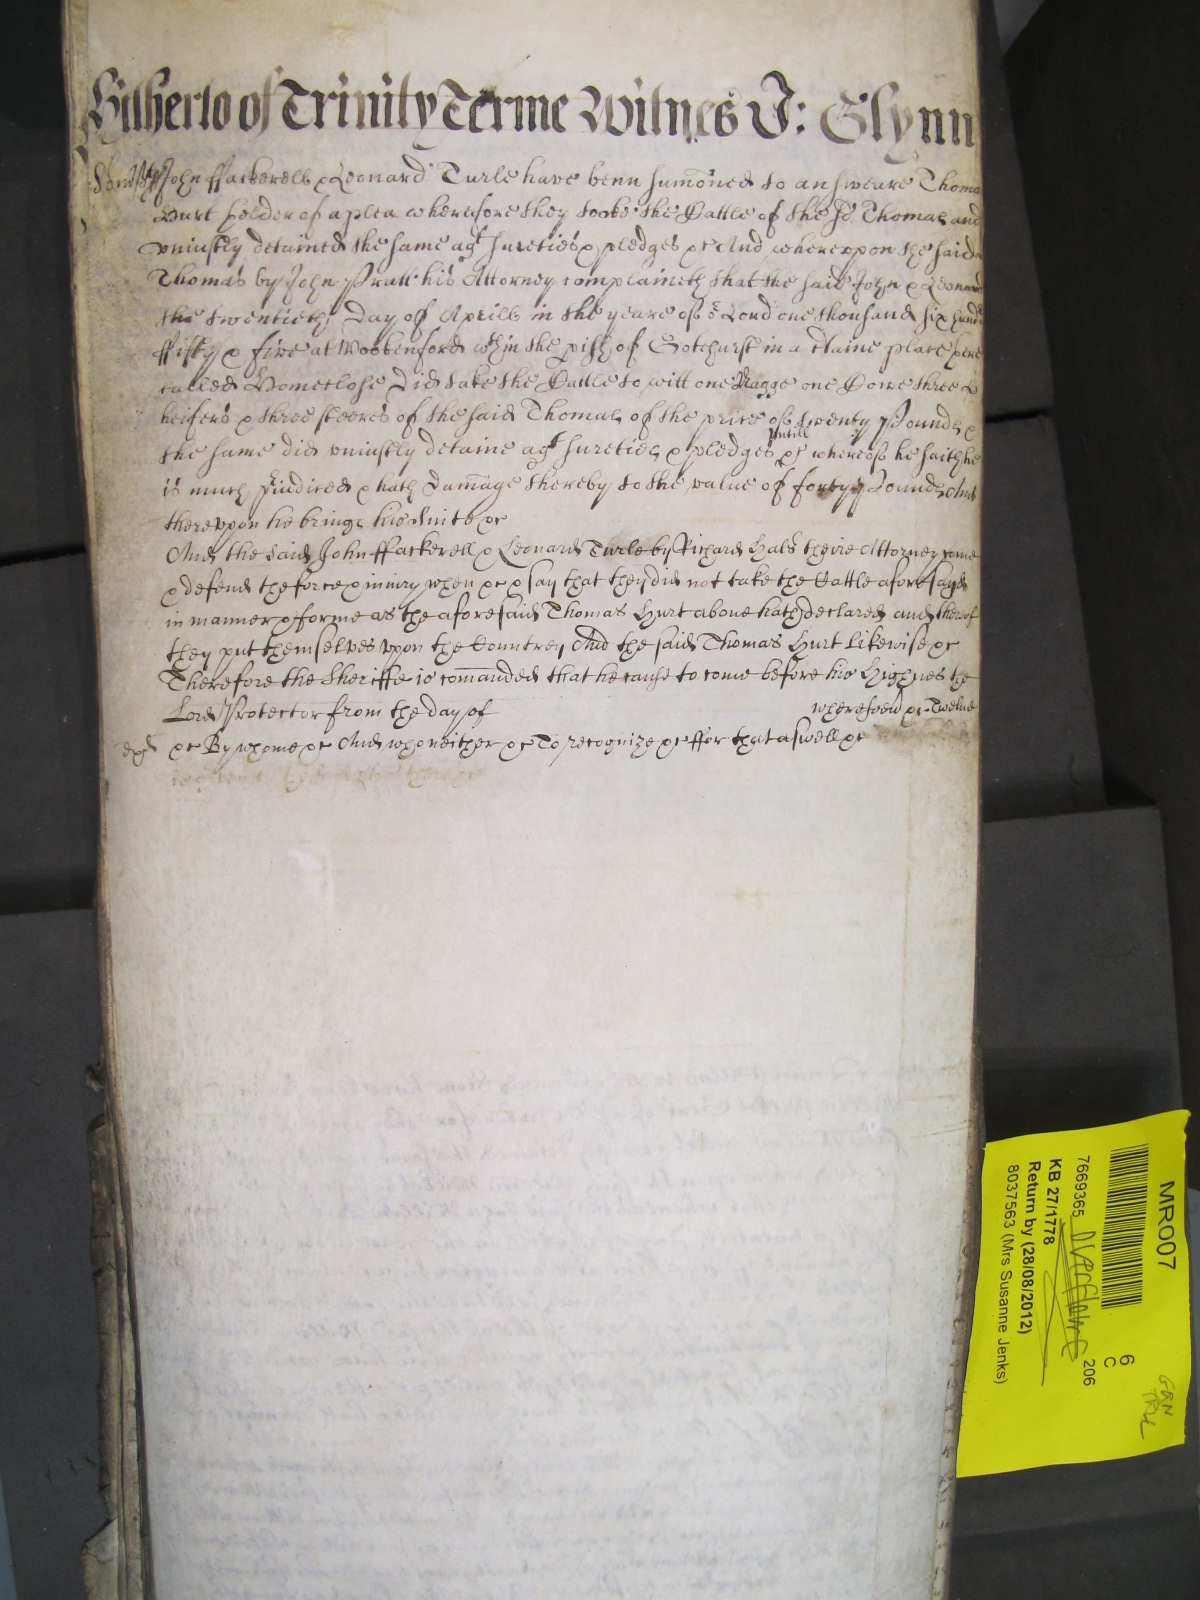 Hitherto of Trinity Terme Witnes J: Glynn
John ffackerell & Leonard Turle have benn sumoned to answeare Thoma
Hurt holder of a plea wherefore they tooke the Cattle of the sd Thomas and
uniustly detained the same agt sureties & pledges &c And whereuppon the said
Thomas by John Pratt his Attorney complaineth that the said John & Leonard
the twentieth Day of Aprill in the yeare of or Lord one thousand six hund
ffifty & five at Woobenford wthin the pish of Gotehurst in a ctaine place there
called Homeclose Did take the Cattle to witt one Nagge one Cowe three
heifers & three steeres of the said Thomas of the price of twenty Pounds &
the same did uniustly detaine agt sureties & pledges untill &c whereof he saith he
is much Jndired & hath Damage thereby to the value of forty Pounds And
thereuppon he brings his suite &c
And the said John ffackerell & Leonard Turle by Richard Hals theire Attorney come
& defend the force & iniury when &c & say that they did not take the Cattle aforesayd
in manner & forme as the aforesaid Thomas Hurt above hath declared and thereof
they put themselves uppon the Countrey And the said Thomas Hurt Likewise &c
Therefore the Sheriffe is comanded that he cause to come before his Highnes the
Lord Protector from the day of whersoevr &c Twelve
&c By whome &c And who neither &c To recognize &c ffor that aswell &c
MRO07
7669365
KB 27/1778
Return by (28/08/2012)
8037563 (Mrs Susanne Jenks)
6
C
206